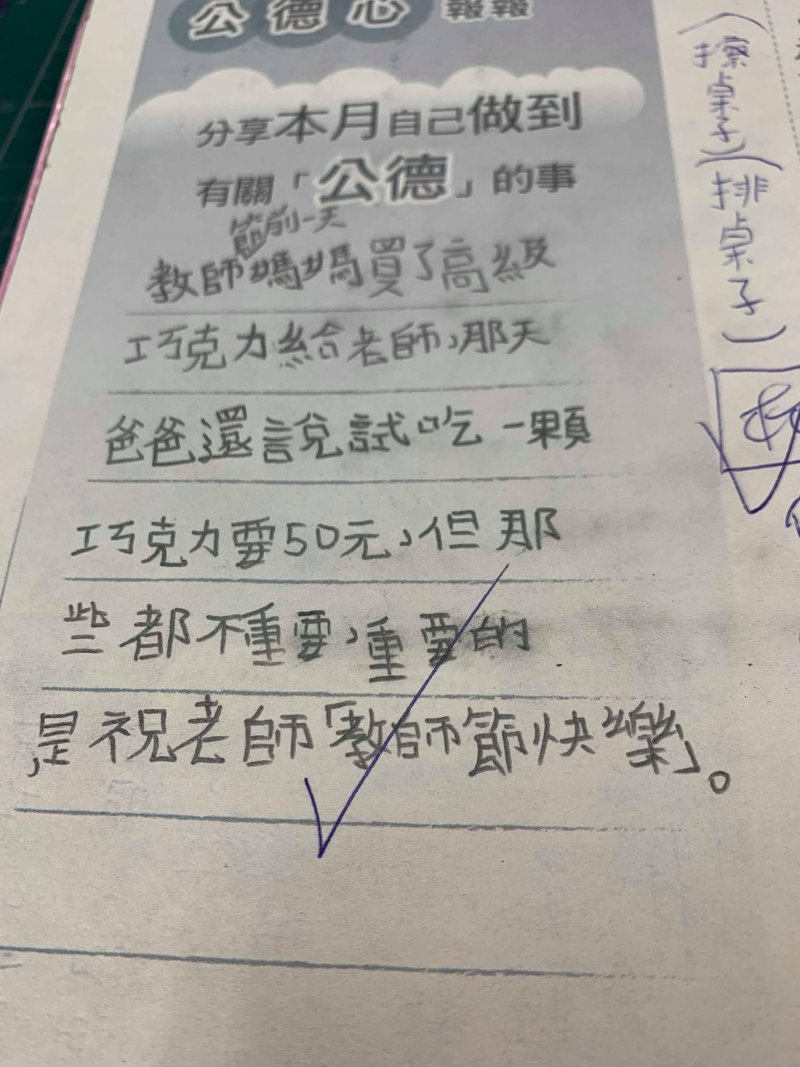 公德心報報
分享本月自己做到
有關「公德」的事
節前一天
教師媽媽買了高級
巧克力給老師,那天
爸爸還說試吃一顆
巧克力要50元,但那
些都不重要,重要的
是祝老師「教師節快樂」。
(擦桌子)(排桌子)